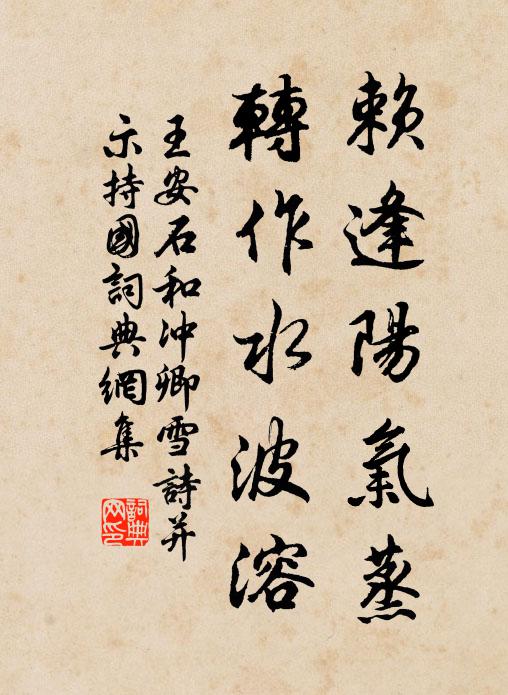 賴逢陽氣蒸
轉作水波溶
王安石和沖卿雪詩并
示持國詞典網集
詞典網印